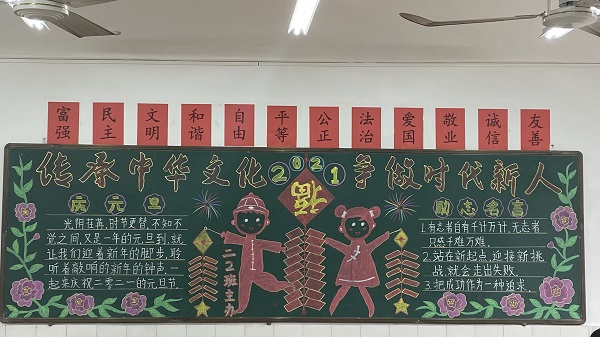 富强 民主 文明 和谐 自由 平等 公正 法治 爱国 敬业 诚信 友善
传承中华文化 2021 争做时代新人
福
庆元旦
光阴荏苒,时节更替,不知不
觉之间,又是一年的元旦到,就
让我们迎着新年的脚步,聆
听着敲响的新年的钟声,一
起来庆祝二零二一的元旦节
二2班主办
励志名言
1.有志者自有千计万计,无志者
只感千难万难.
2.站在新起点,迎接新挑
战,就会走出失败
3.把成功作为一种追求.